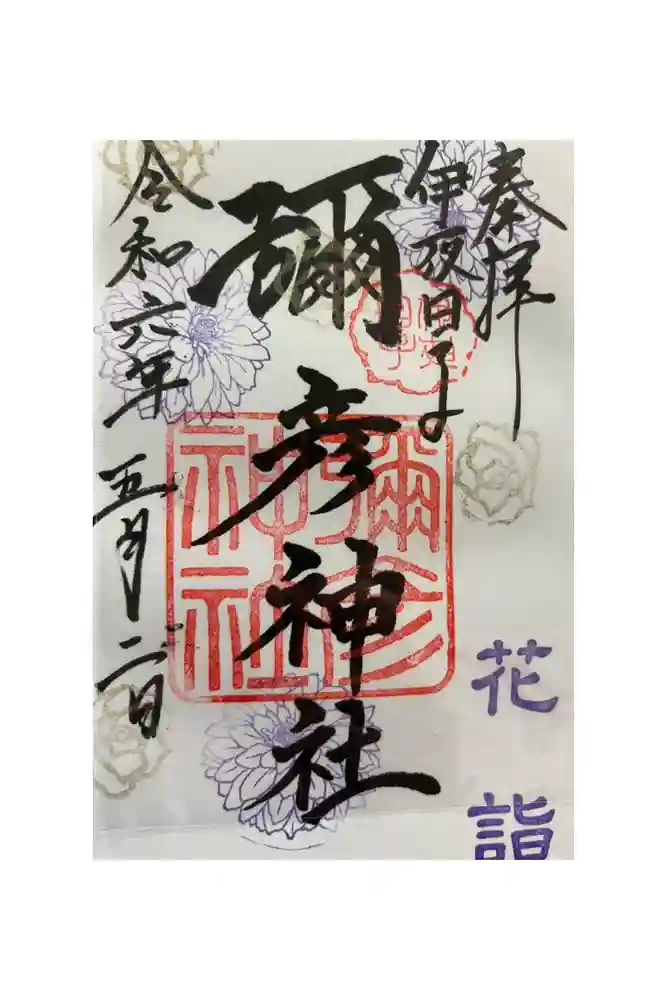 奉拝
伊夜日子
彌彦神社
令和六年五月二日
彌彦
神社
花詣